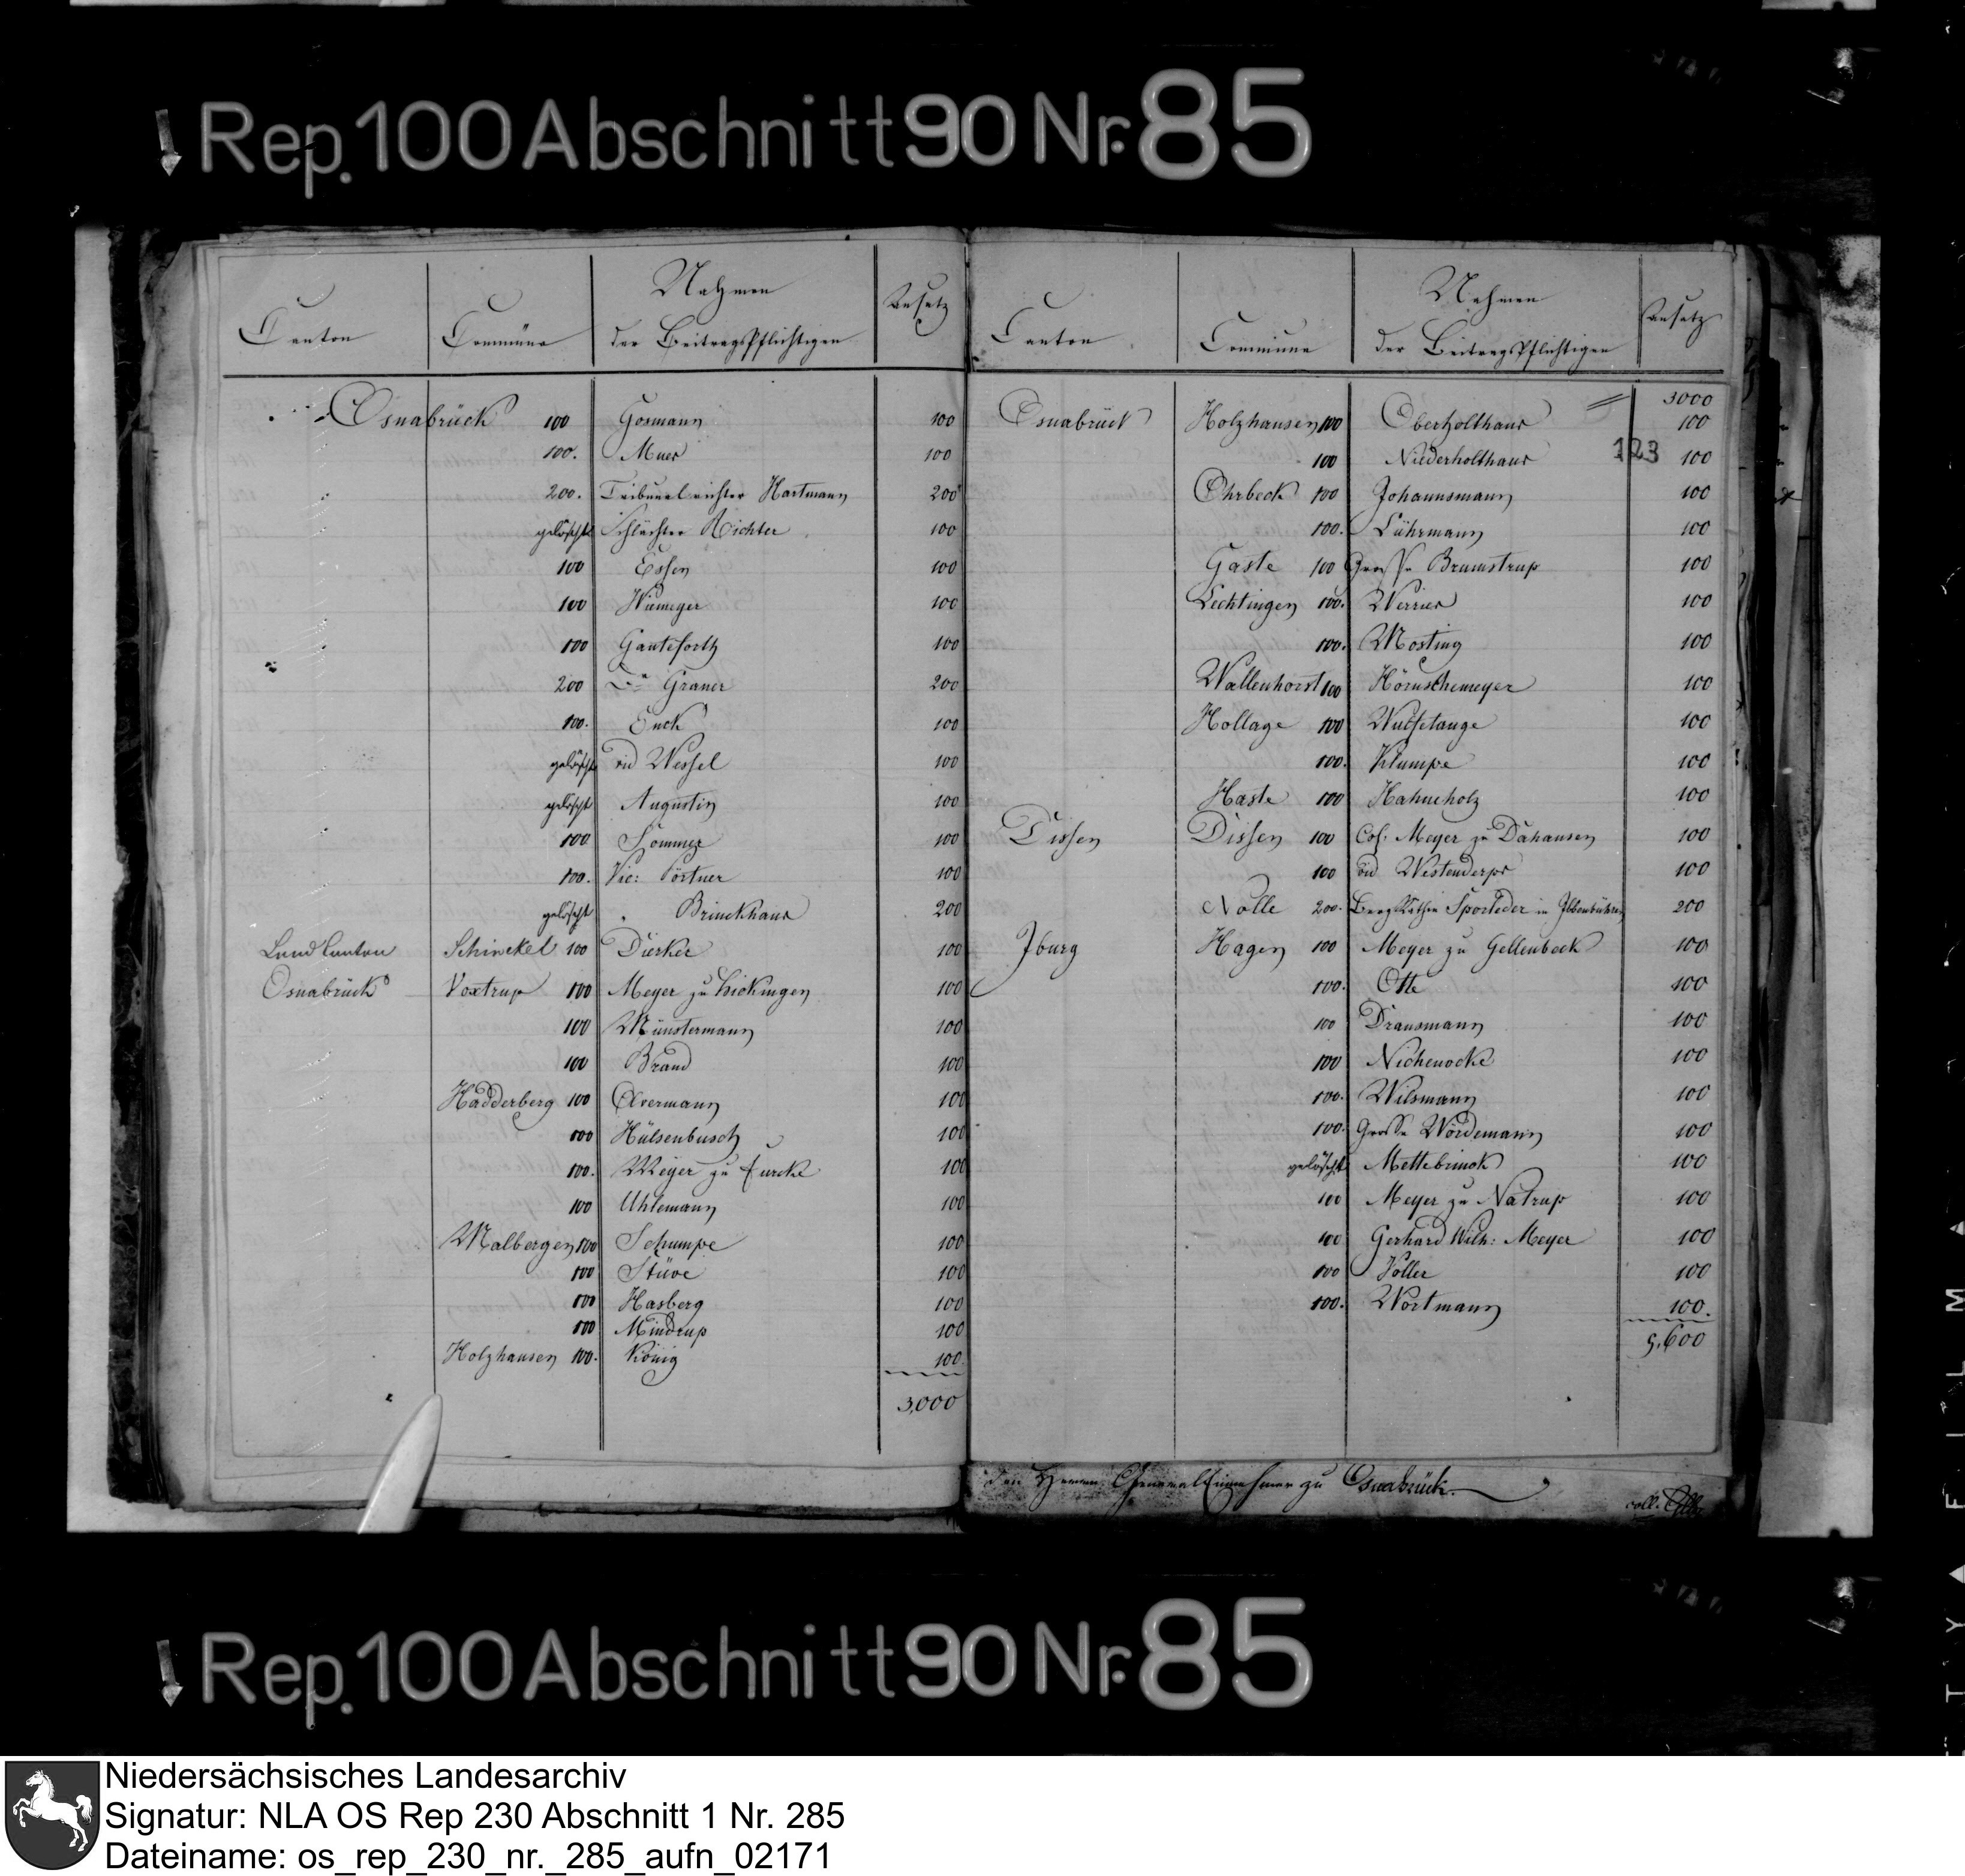 Rep. 100 Abschnitt 90 Nr. 85
Canton Commüne Nahmen der Beitragspflichtigen Ansatz
Osnabrück 100 Gosmann 100
100. Muer 100
200. Tribunalrichter Hartmann 200
gelöscht Schlächter Richter 100
100 Essen 100
100 Niemeyer 100
100 Ganteforth 100
200 Dr Graner 200
100. Enck 100
gelöscht vid Wessel 100
gelöscht Augustin 100
100 Sommer 100
100. Vic: Pörtner 100
gelöscht Brinckhaus 200
Land Canton Schinckel 100 Dierker 100
Osnabrück Voxtrup 100 Meyer zu Hickingen 100
100 Münstermann 100
100 Brand 100
Hadderberg 100 Avermann 100
100 Hülsenbusch 100
100. Meyer zu 100
100 Uhlemann 100
Malbergen 100 Schumpe 100
100 Stüve 100
100 Hasberg 100
100 Mindrup 100
Holzhausen 100. König 100
3,000
Canton Commüne Nahmen der Beitragspflichtigen Ansatz
3000
Osnabrück Holzhausen 100 Oberholthaus 100
123
100 Niederholthaus 100
Ohrbeck 100 Johannsmann 100
100. Lührmann 100
Gaste 100 Grosse Brumstrup 100
Lechtingen 100. Werries 100
100. Mosting 100
Wallenhorst 100 Hörnschemeyer 100
Hollage 100 Wulfetange 100
100. Klumpe 100
Haste 100 Hahneholz 100
Dissen Dissen 100 Col: Meyer zu Dahausen 100
100 vid Westenderps 100
Nolle 200. Sporleder in Ibbenbühren 200
Iburg Hagen 100 Meyer zu Gellenbeck 100
100. Otte 100
100 Drausmann 100
100 Nichenocke 100
100. Wilsmann 100
100. Grosse Wördemann 100
gelöscht Mettebrinck 100
100 Meyer zu Natrup 100
100 Gerhard Wilh: Meyer 100
100 Voller 100
100. Wortmann 100.
5,600
den Herrn General Einnehmer zu Osnabrück.
coll.
Rep. 100 Abschnitt 90 Nr. 85
Niedersächsisches Landesarchiv
Signatur: NLA OS Rep 230 Abschnitt 1 Nr. 285
Dateiname: os_rep_230_nr._285_aufn_02171